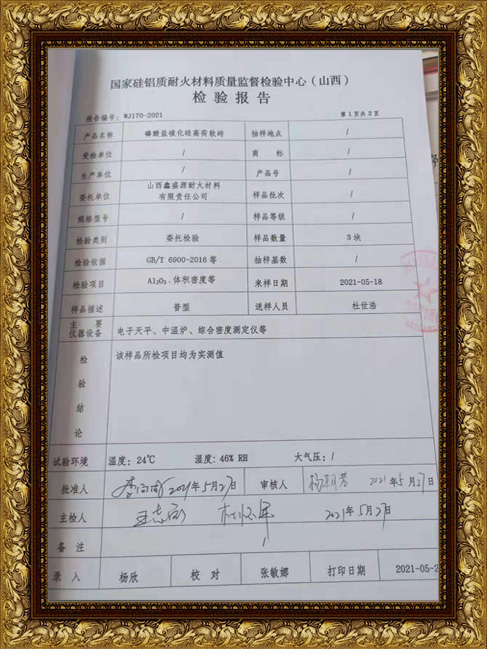 国家硅铝质耐火材料质量监督检验中心（山西）
检 验 报 告
报告编号：WJ170-2021 第 1 页 共 2 页
产品名称 磷酸盐碳化硅高荷软砖 抽样地点 /
受检单位 / 商 标 /
生产单位 / 产品号 /
委托单位 山西鑫盛源耐火材料有限责任公司 样品批次 /
规格型号 / 样品等级 /
检验类别 委托检验 样品数量 3 块
检验依据 GB/T 6900-2016 等 抽样基数 /
检验项目 Al₂O₃、体积密度等 来样日期 2021-05-18
样品描述 普型 送样人员 杜世浩
主 要
仪器设备 电子天平、中温炉、综合密度测定仪等
检 验 结 论 该样品所检项目均为实测值
试验环境 温度：24℃ 湿度：46% RH 大气压：/
批准人 2021年5月27日 审核人 2021年5月27日
主检人 2021年5月27日
备 注 /
录 入 杨欣 校 对 张敏娜 打印日期 2021-05-2